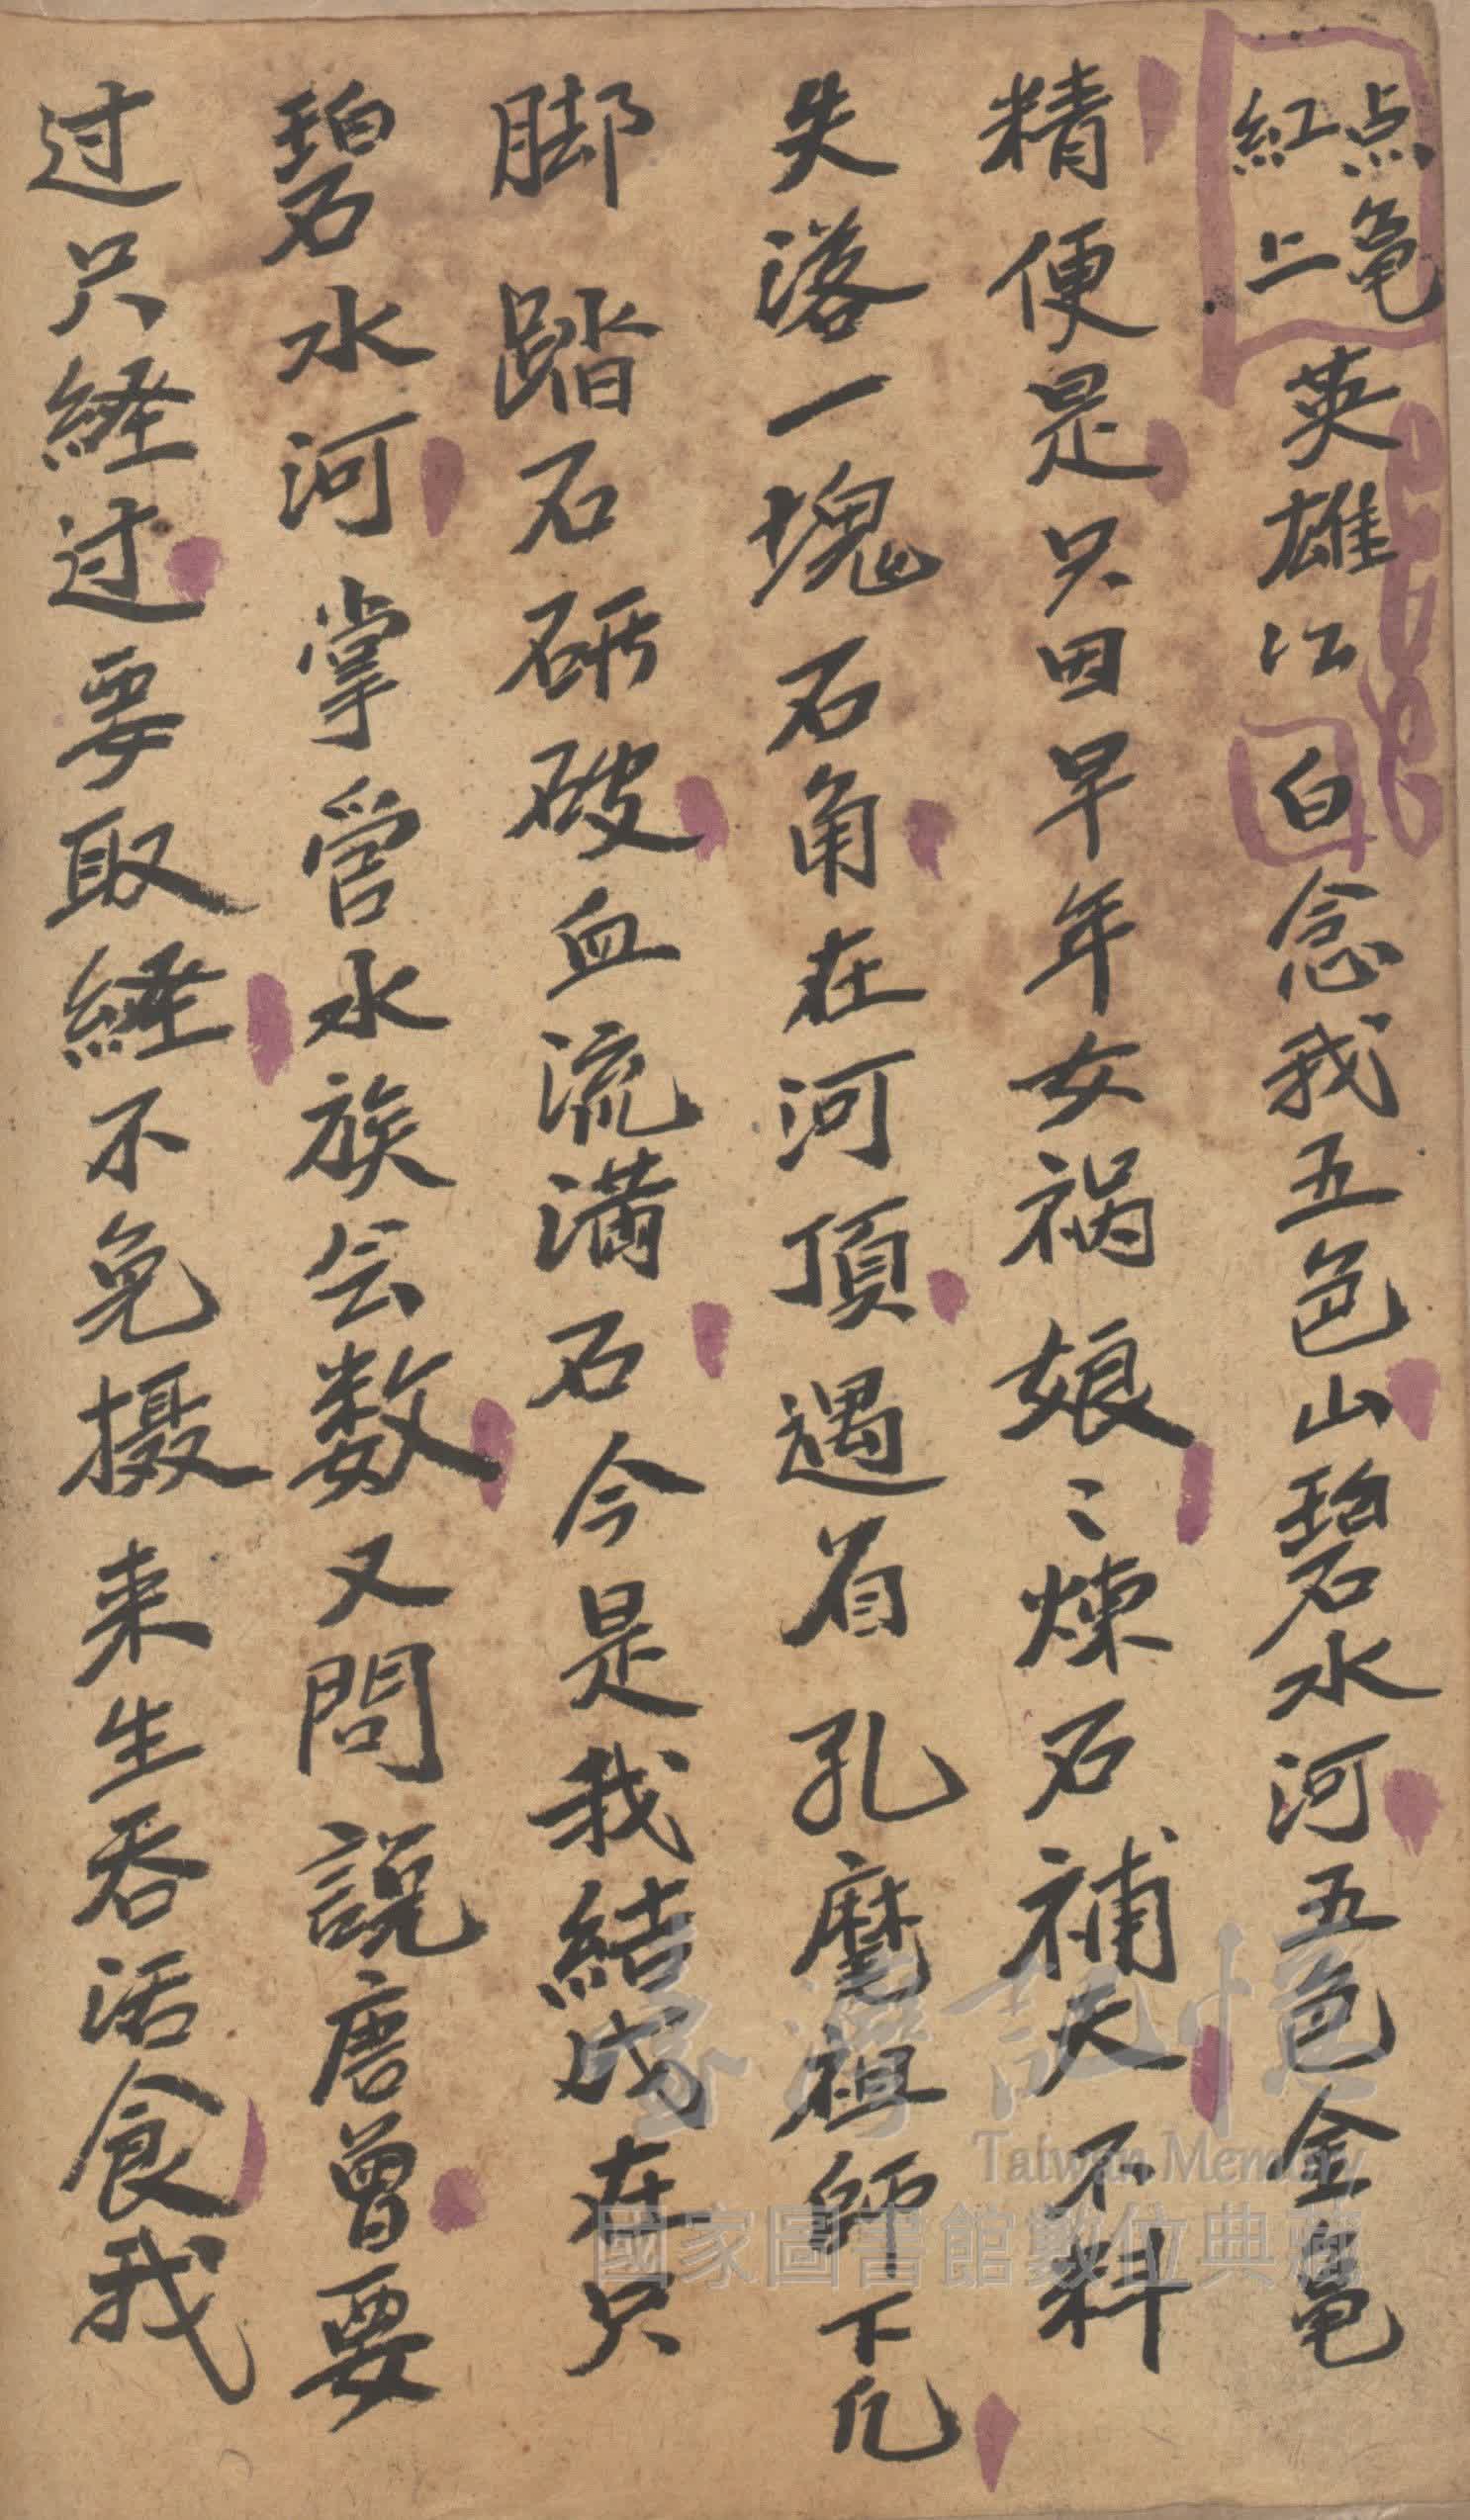 点龟
紅上
英雄江 白 念我五色山碧水河五色金龟
精便是只因早年女祸娘〻煉石補天不料
失落一塊石角在河頂遇着孔麾祖師下凡
脚踏石砳破血流满石今是我結成在只
碧水河掌管水族会数又問説唐曽要
过只経过要取経不免摄来生吞活食我
臺灣記憶
Taiwan Memory
國家圖書館數位典藏